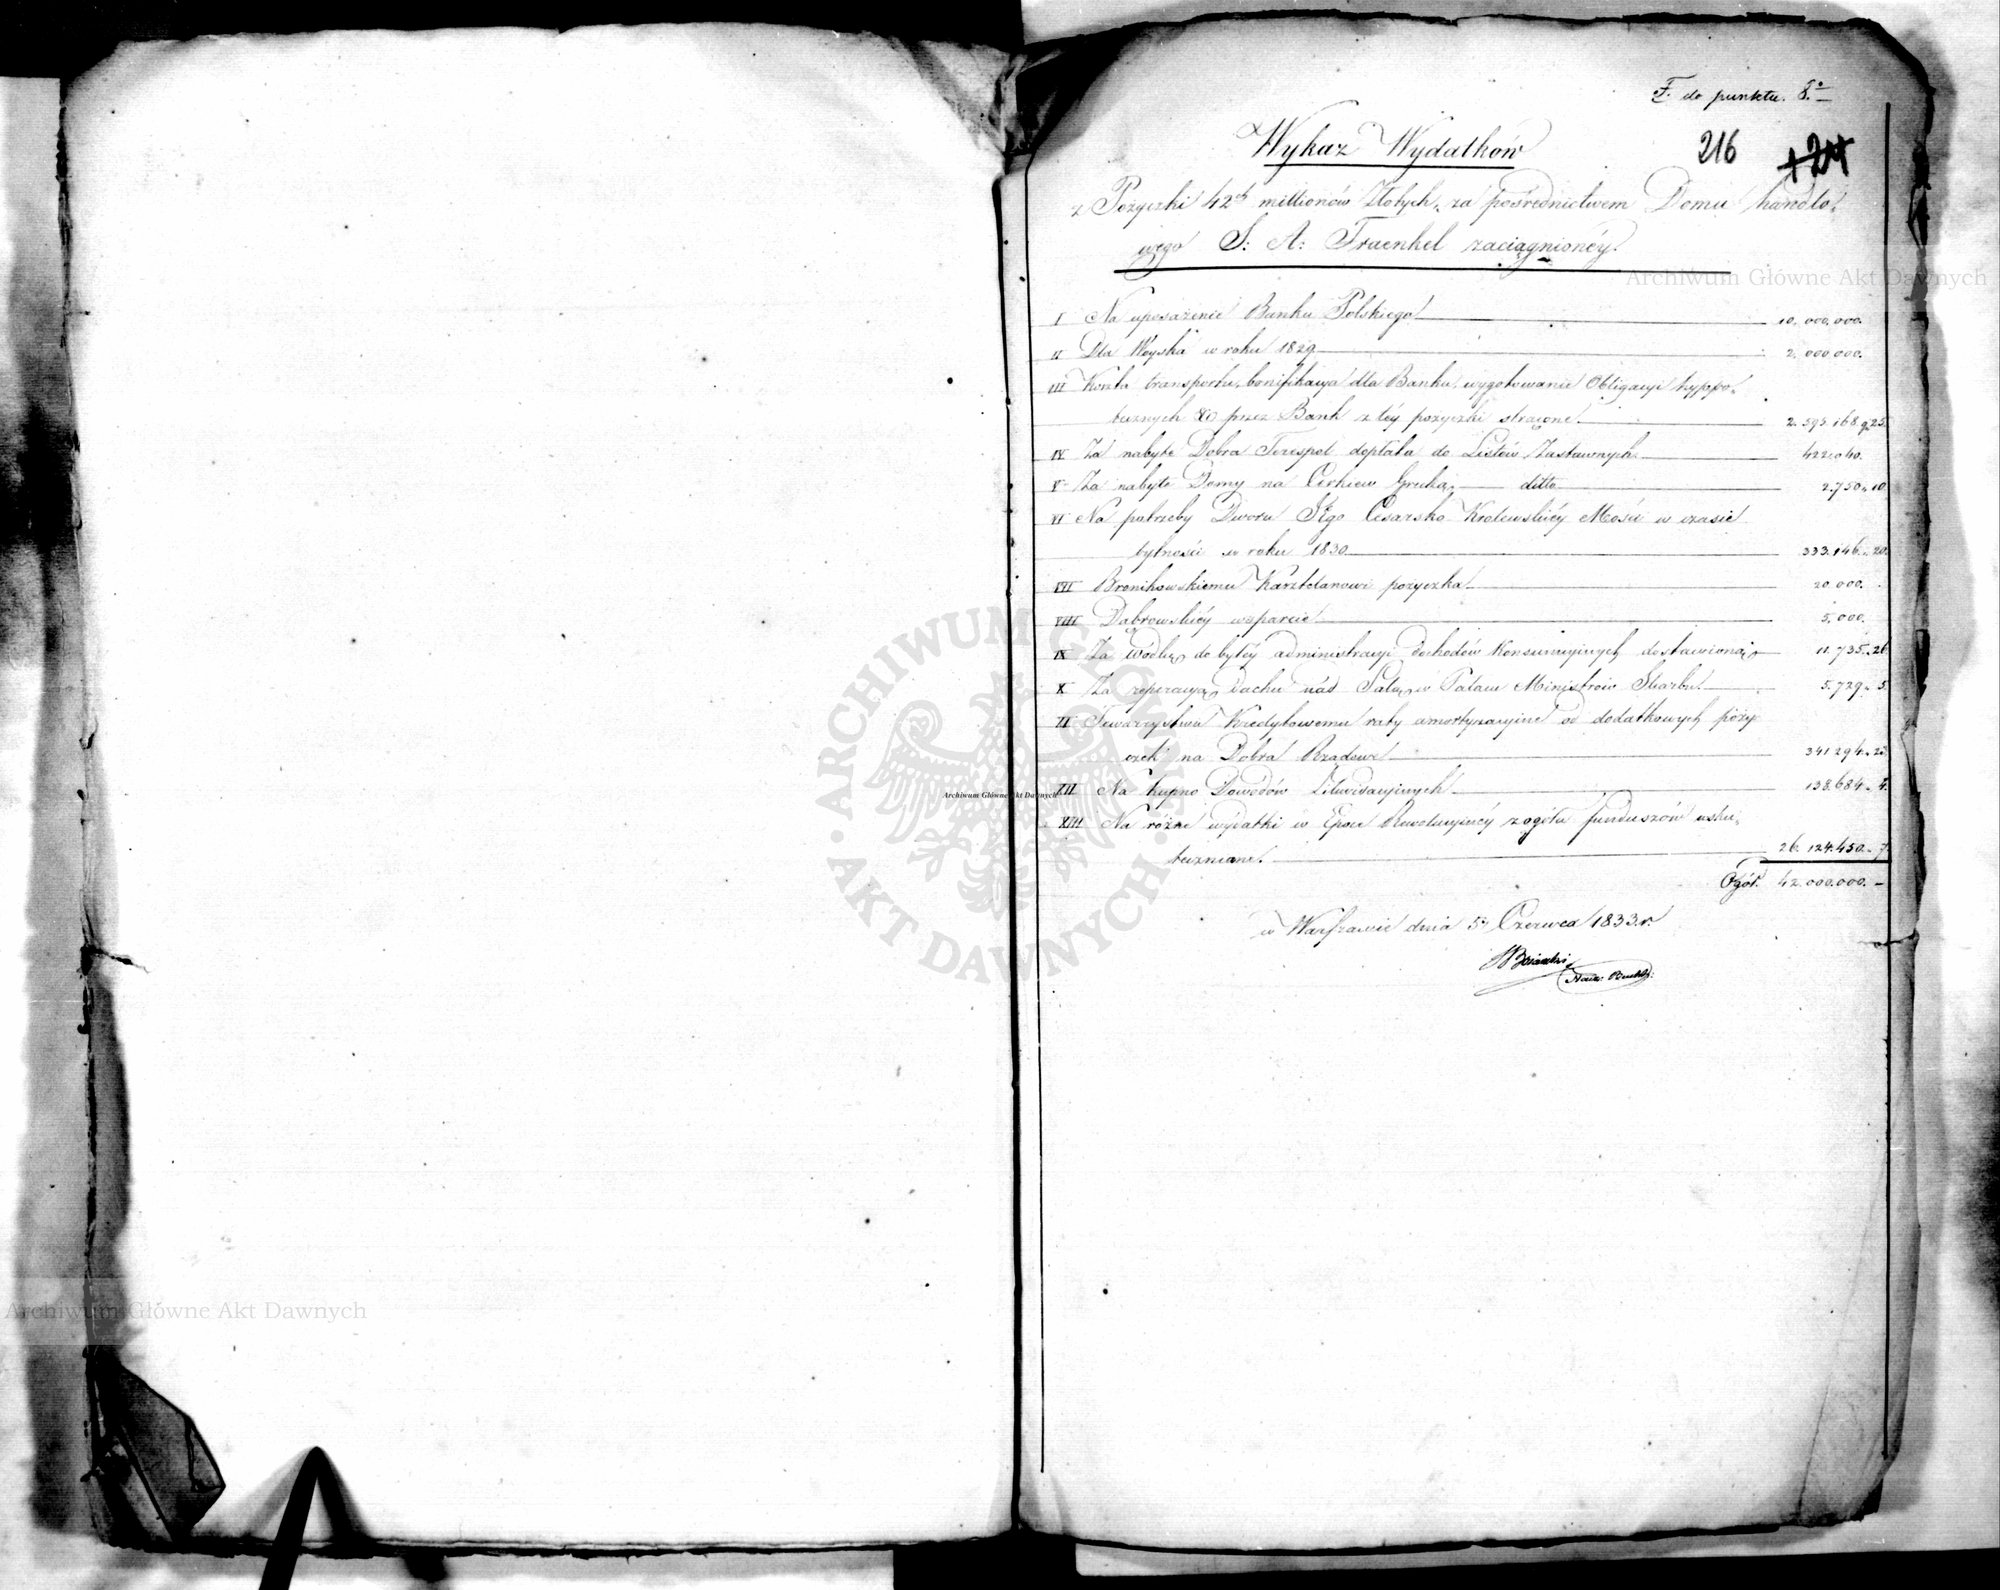 F. do punktu. 8.º
Wykaz Wydatków
216
+24
z Pożyczki 42ch millionów Złotych, za pośrednictwem Domu handlo,
wego S: A: Fraenkel zaciągnionéy.
Archiwum Główne Akt Dawnych
I Na uposażenie Banku Polskiego 10.000.000.
II Dla Woyska w roku 1829 2.000.000.
III Koszta transportu, bonifikacya dla Banku, wygotowanie Obligacyi hyppo,
tecznych &c przez Bank z téy pożyczki strącone. 168. 25.
IV Za nabyte Dobra Terespol dopłata do Listów Zastawnych.
V Za nabyte Domy na Cerkiew Grecką, ditto 2.750. 10.
VI Na potrzeby Dworu Jego Cesarsko Królewskiéy Mości w czasie
bytności w roku 1830 333.146. 20.
VII Bronikowskiemu Kasztelanowi pożyczka 20.000.
VIII Dąbrowskiéy wsparcie 5.000.
IX Za wódkę do byłéy administracyi dochodów Konsumcyinych dostawioną 11.735. 26.
X Za reperacyą dachu nad Salą w Pałacu Ministrów Skarbu. 5.729. 5.
XI Towarzystwu Kredytowemu raty amortyzacyine od dodatkowych poży
czek na Dobra Rządowe 341.294. 23.
XII Na kupno Dowodów Likwidacyinych 138.684. 4.
XIII Na różne wydatki w Epoce Rewolucyinéy z ogółu funduszów usku,
tecznione. 26.124.450. 7.
Ogół. 42.000.000. –
w Warszawie dnia 5 Czerwca 1833.r.
Archiwum Główne Akt Dawnych
ARCHIWUM GŁÓWNE · AKT DAWNYCH ·
Archiwum Główne Akt Dawnych